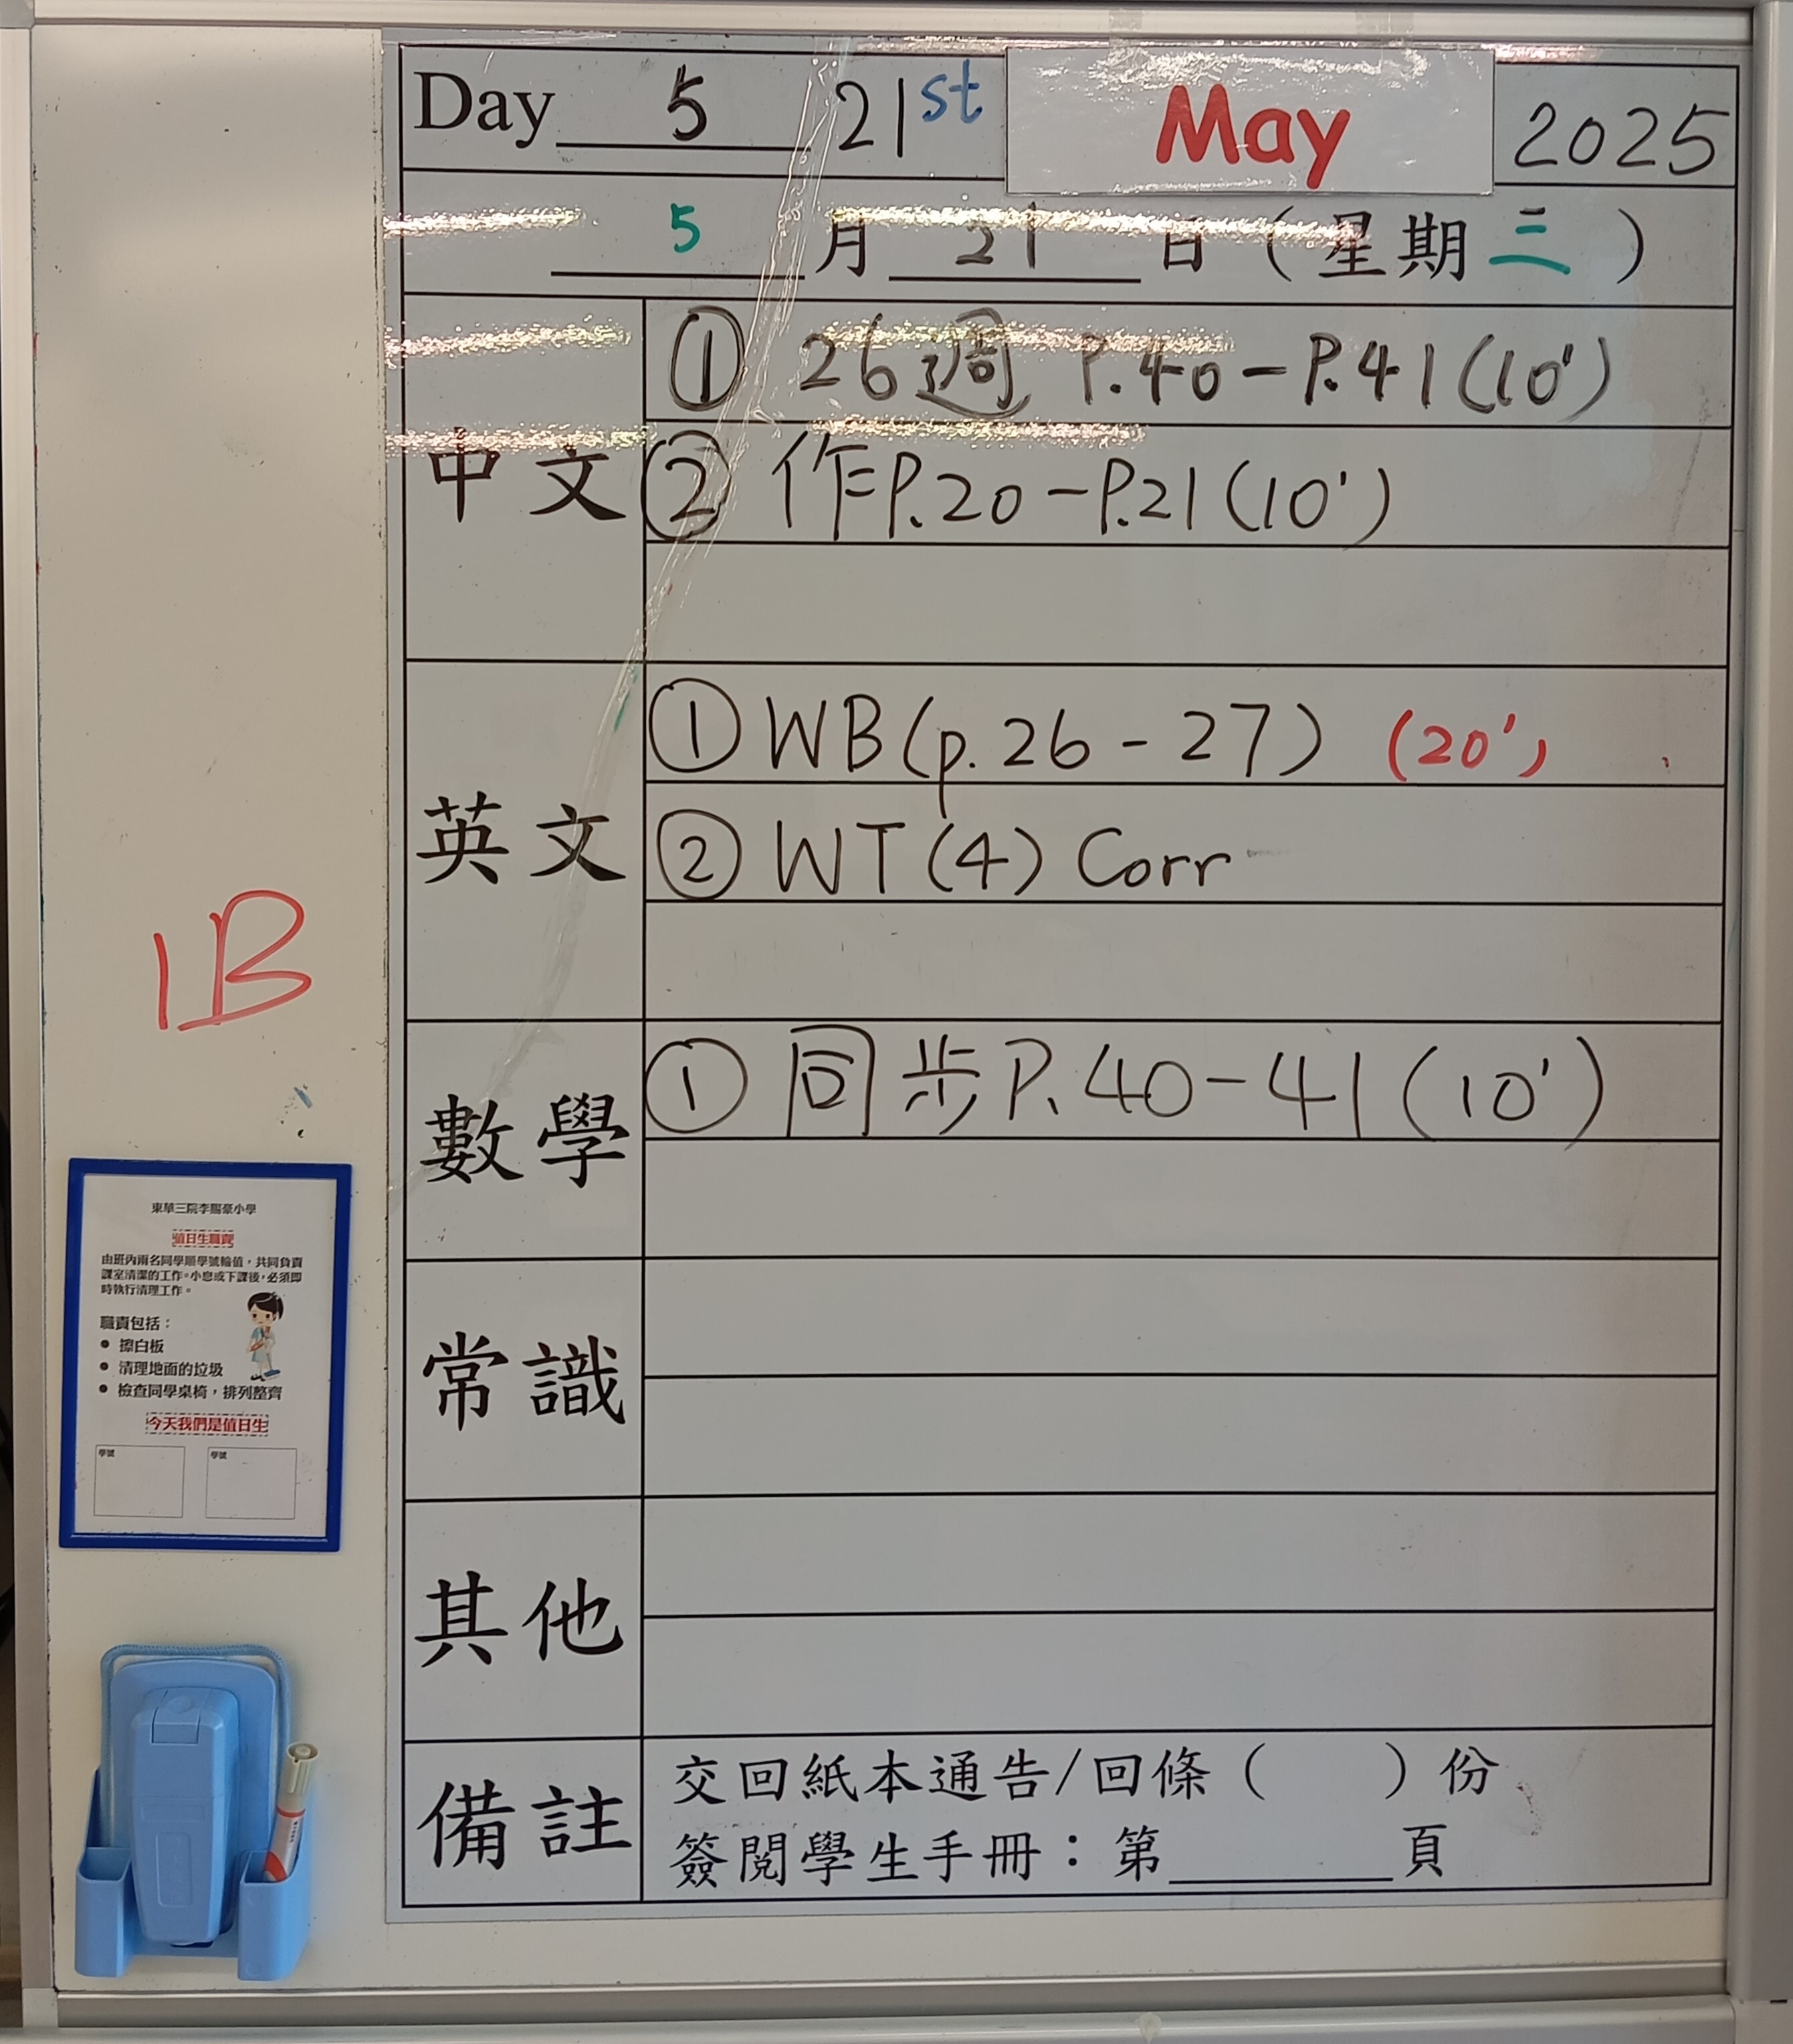 Day 5 21st May 2025
5 月 21 日 ( 星期三 )
中文
① 26週 P.40-P.41(10')
② 作P.20-P.21(10')
英文
① WB(p.26-27) (20')
② WT(4) Corr
數學
① 同步P.40-41(10')
常識
其他
備註
交回紙本通告/回條 ( ) 份
簽閱學生手冊：第______頁
1B
東華三院李賜豪小學
值日生職責
由班內兩名同學順學號輪值，共同負責
課室清潔的工作。小息或下課後，必須即
時執行清理工作。
職責包括：
• 擦白板
• 清理地面的垃圾
• 檢查同學桌椅，排列整齊
今天我們是值日生
學號 學號